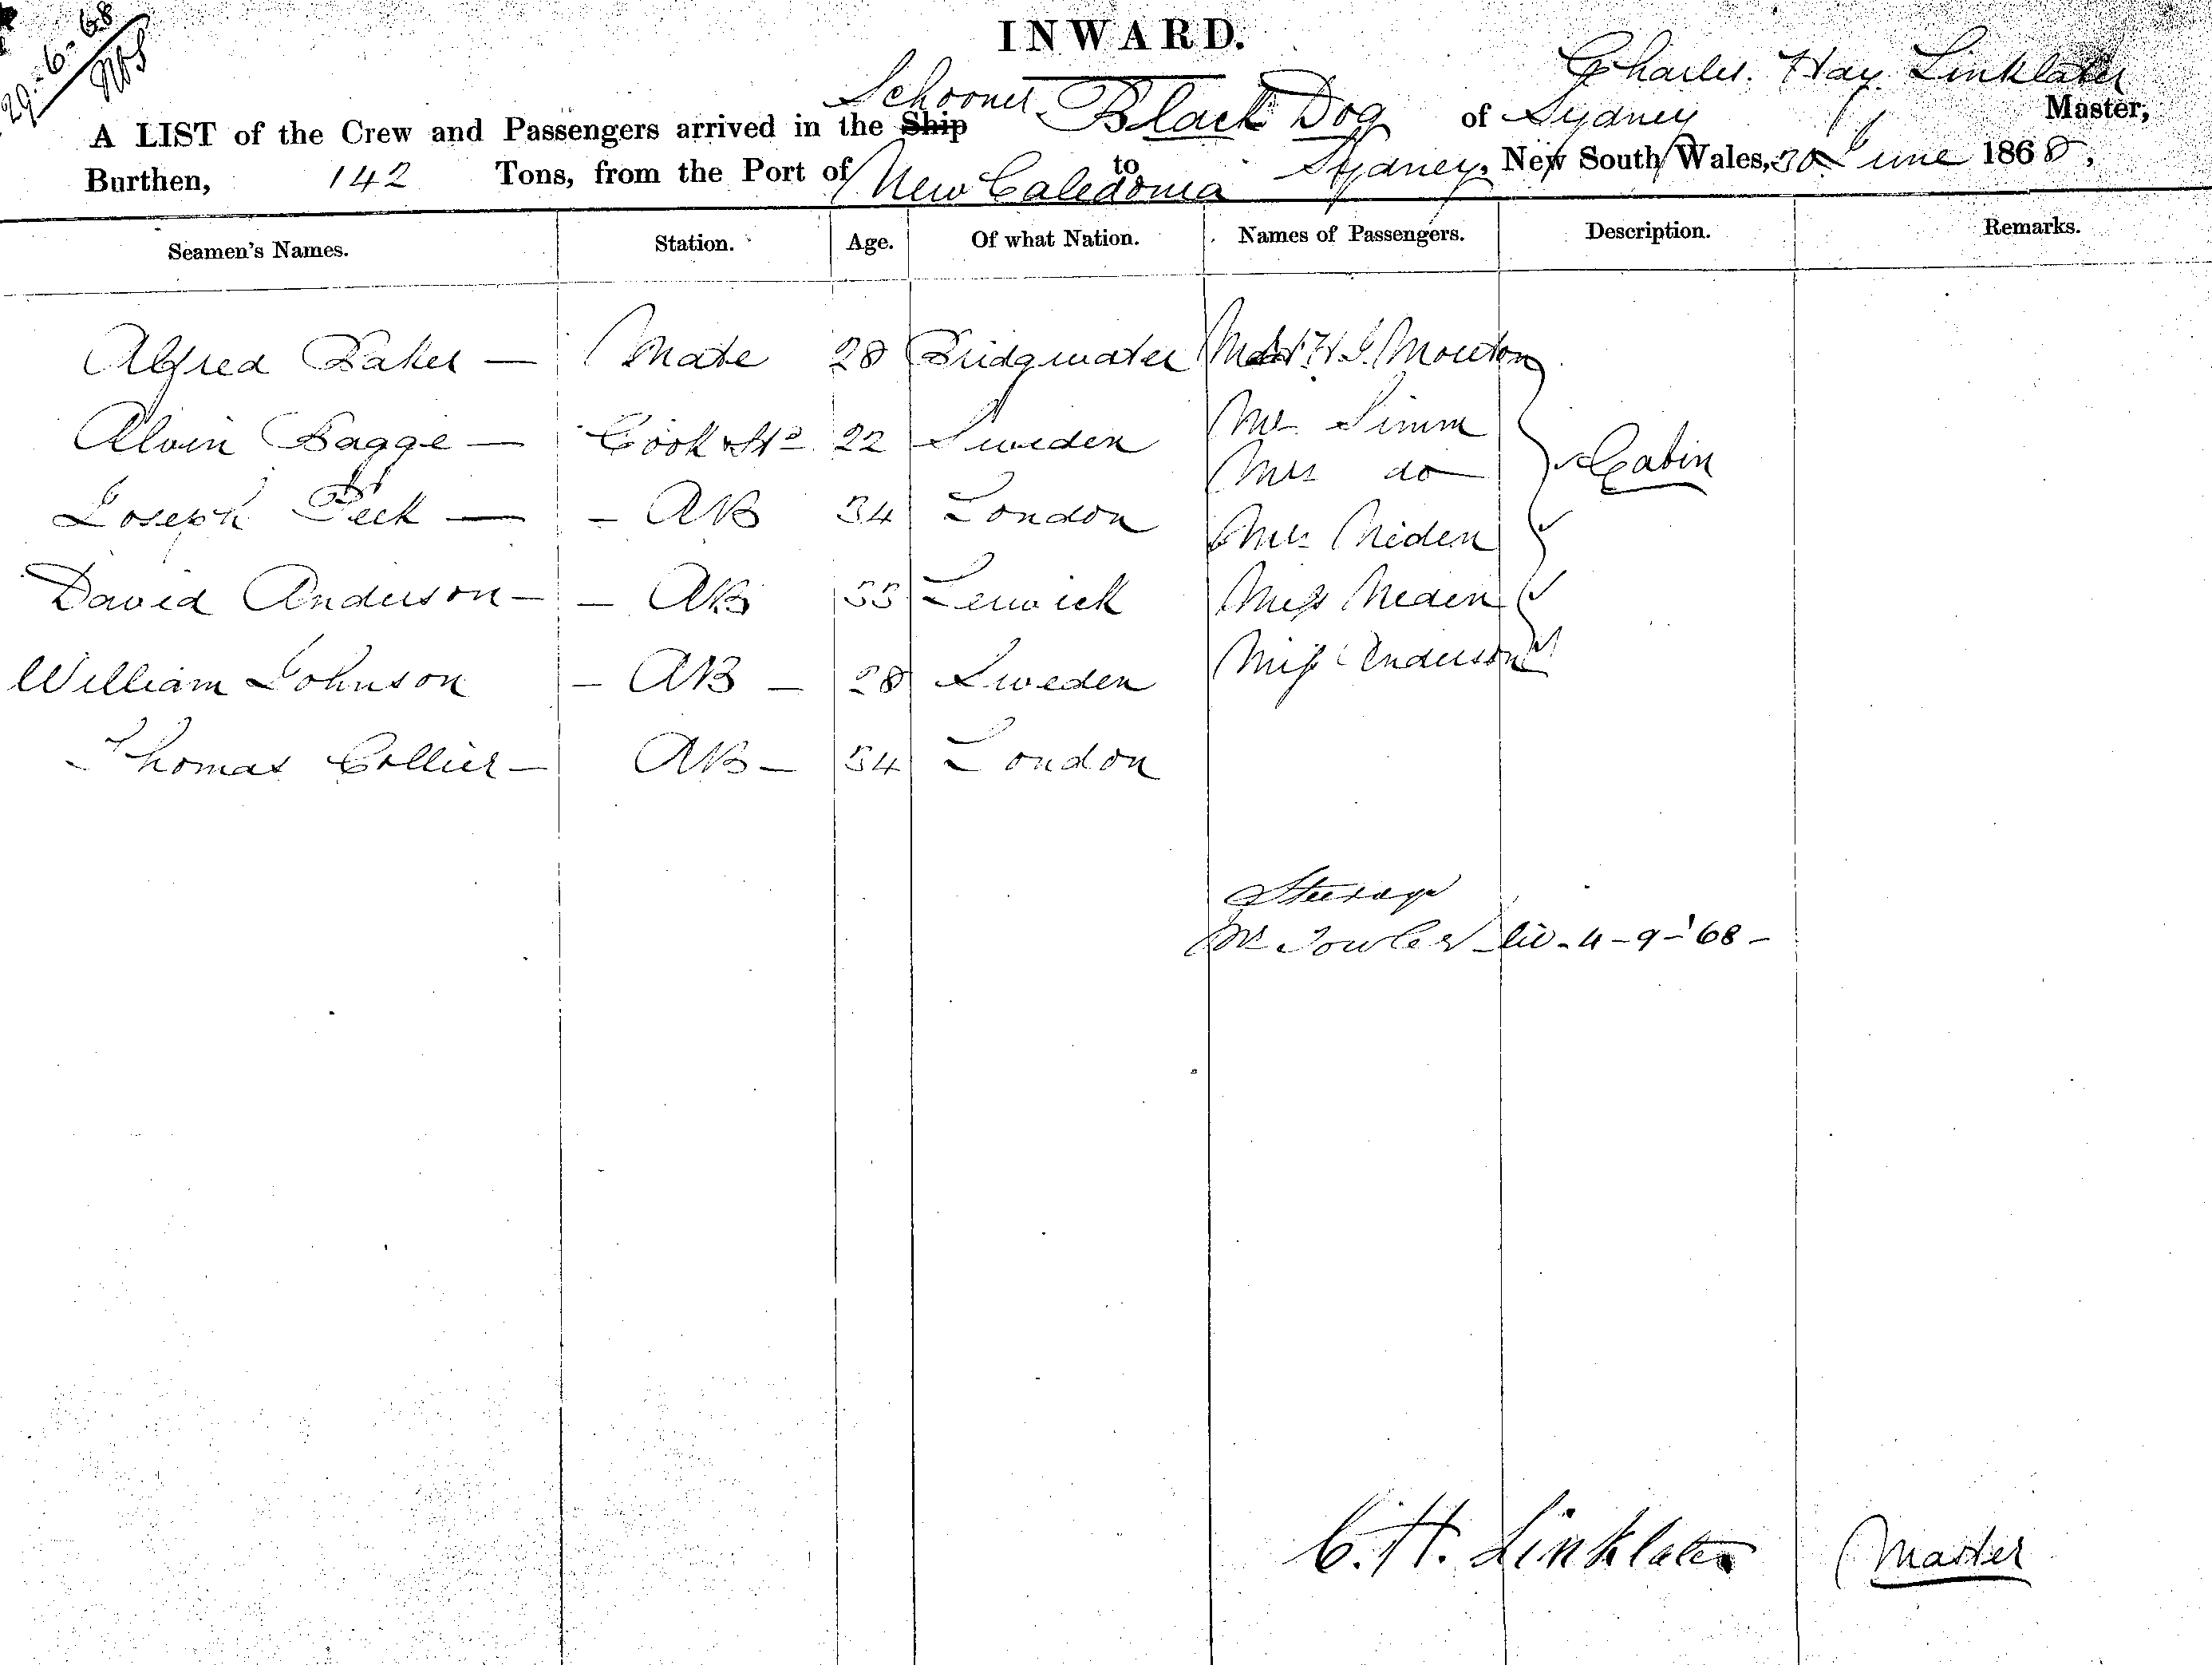 29-6-68
INWARD.
Charles Hay Linklater
A LIST of the Crew and Passengers arrived in the Ship Schooner Black Dog of Sydney Master,
Burthen, 142 Tons, from the Port of New Caledonia to Sydney, New South Wales, 30 June 1868,
Seamen's Names. Station. Age. Of what Nation. Names of Passengers. Description. Remarks.
Alfred Baker — Mate 28 Bridgwater H J. Mouton
Alvin Bagge — Cook & Std 22 Sweden Mr Simm
Mrs do — Cabin
Joseph Peck — - AB 34 London Mrs Niden
David Anderson - - AB 33 Lerwick Miss Niden
William Johnson - AB - 28 Sweden Miss Anderson
Thomas Collier - AB - 34 London
Steerage
Mr Fowler - 4-9-'68 -
C. H. Linklater Master